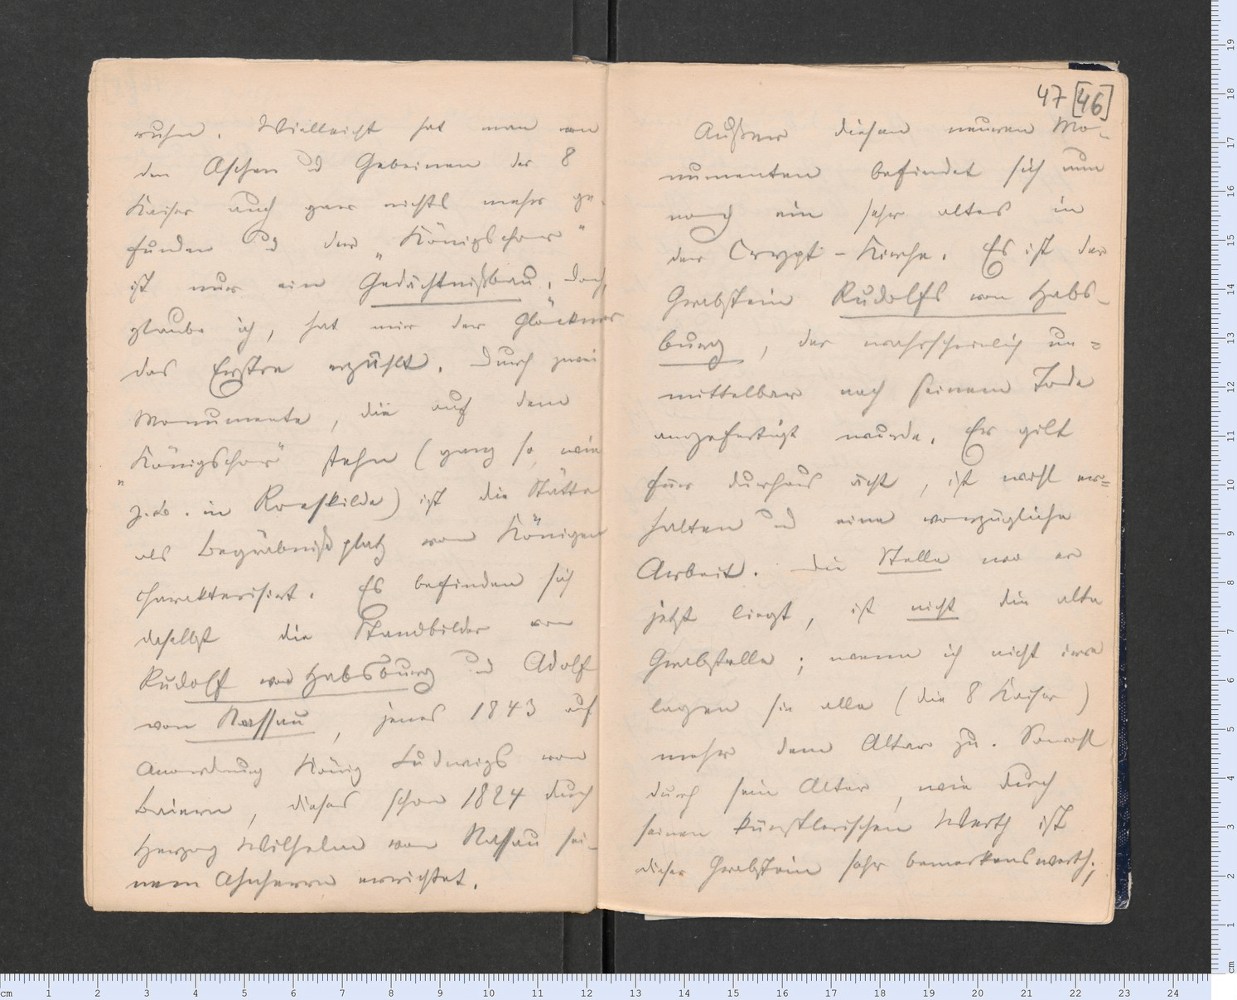 ruhn. Vielleicht hat man von
den Aschen u d Gebeinen der 8
Kaiser auch gar nichts mehr ge-
funden u d der „Königschor“
ist nur ein Gedächtnißbau, doch,
glaube ich, hat mir der Glöckner
das Erstre erzählt. Durch zwei
Monumente, die auf dem
„Königschor“ stehn (ganz so, wie
z. B. in Roeskilde) ist die Stätte
als Begräbnißplatz von Königen
charakterisirt. Es befinden sich
daselbst die Standbilder von
Rudolf von Habsburg u d Adolf
von Nassau, jenes 1843 auf
Anordnung König Ludwigs von
Baiern, dieses schon 1824 durch
Herzog Wilhelm von Nassau sei-
nem Ahnherrn errichtet.
47 [46]
Außer diesen neuren Mo-
numenten befindet sich nun
noch ein sehr altes in
der Crypt-Kirche. Es ist der
Grabstein Rudolfs von Habs-
burg, der wahrscheinlich un-
mittelbar nach seinem Tode
angefertigt wurde. Er gilt
für durchaus ächt, ist wohl er-
halten u d eine vorzügliche
Arbeit. Die Stelle wo er
jetzt liegt, ist nicht die alte
Grabstelle; wenn ich nicht irre
lagen sie alle (die 8 Kaiser)
mehr dem Altar zu. Sowohl
durch sein Alter, wie durch
seinen künstlerischen Werth ist
dieser Grabstein sehr bemerkenswerth;